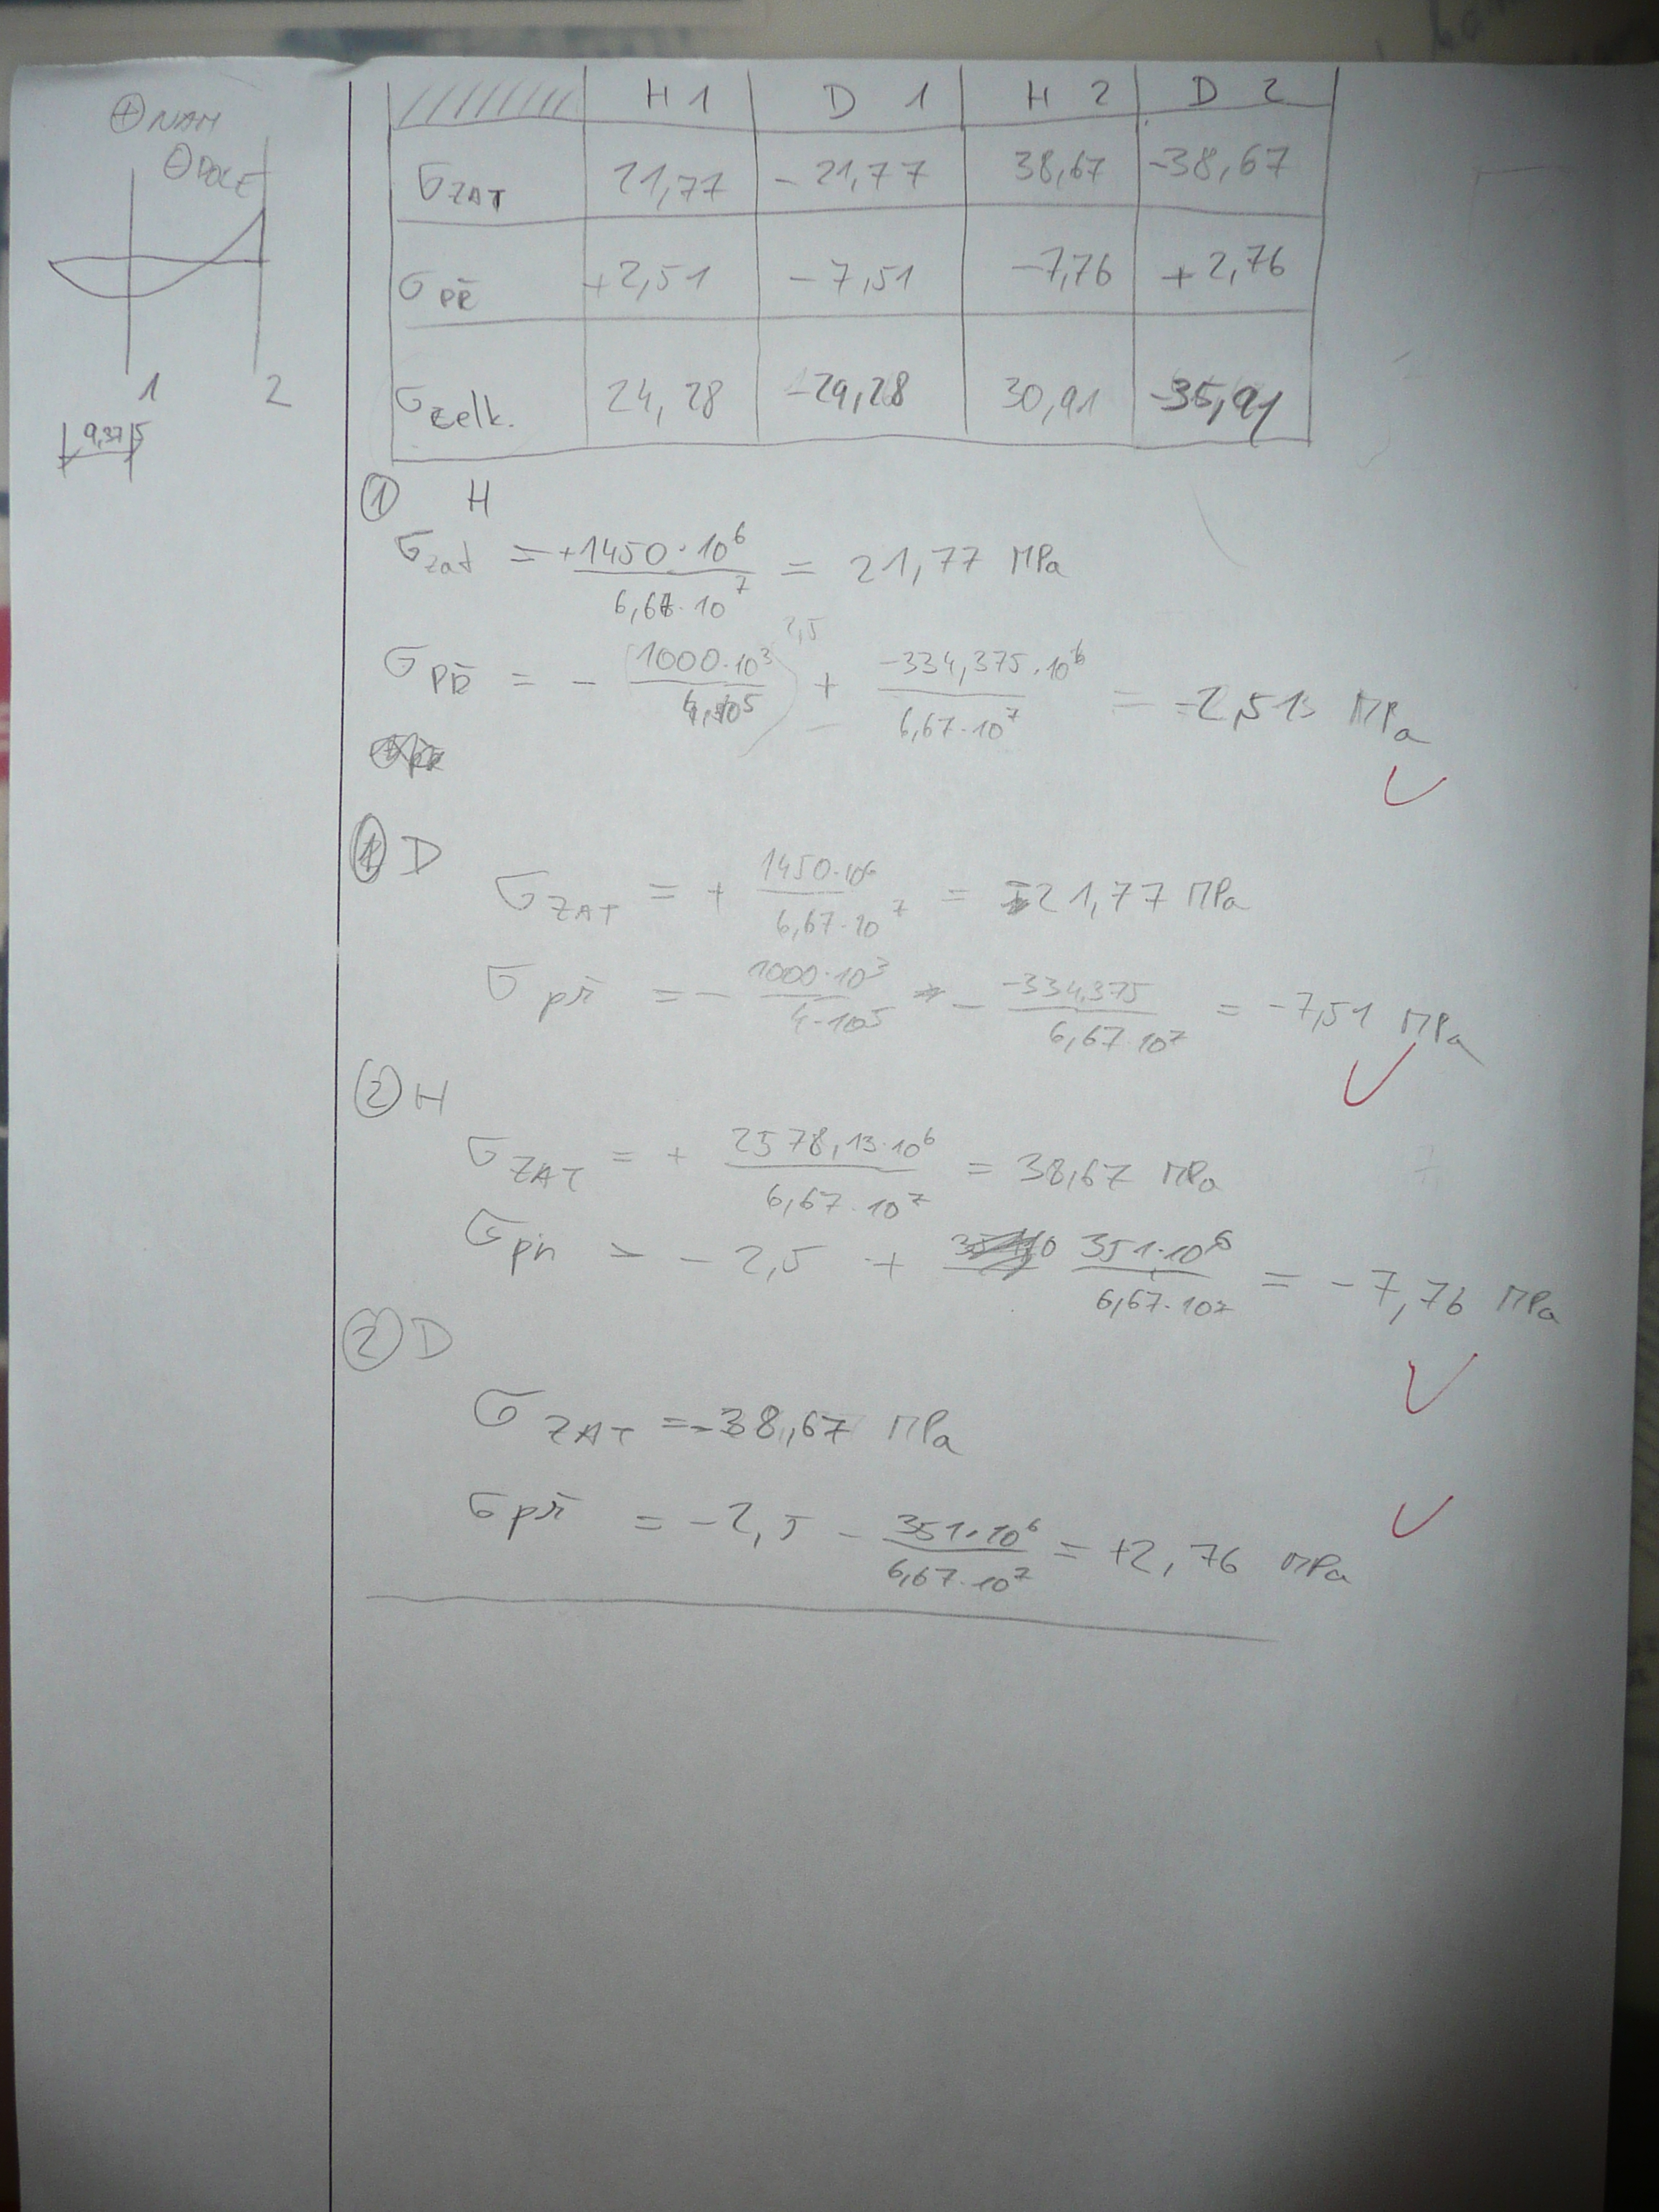 ⊕ NAH
⊖ DOLE
1 2
9,375
H 1 D 1 H 2 D 2
σ ZAT 21,77 - 21,77 38,67 -38,67
σ PŘ +2,51 - 7,51 -7,76 + 2,76
σ celk. 24,28 -29,28 30,91 -35,91
① H
σ zat = +1450·10⁶ / 6,67·10⁷ = 21,77 MPa
2,5
σ PŘ = - 1000·10³ / 4·10⁵ + -334,375·10⁶ / 6,67·10⁷ = -2,513 MPa
① D
σ ZAT = + 1450·10⁶ / 6,67·10⁷ = -21,77 MPa
σ př = - 1000·10³ / 4·10⁵ - -334,375 / 6,67·10⁷ = -7,51 MPa
② H
σ ZAT = + 2578,13·10⁶ / 6,67·10⁷ = 38,67 MPa
σ př = - 2,5 + 351·10⁶ / 6,67·10⁷ = - 7,76 MPa
② D
σ ZAT = -38,67 MPa
σ př = -2,5 - 351·10⁶ / 6,67·10⁷ = +2,76 MPa